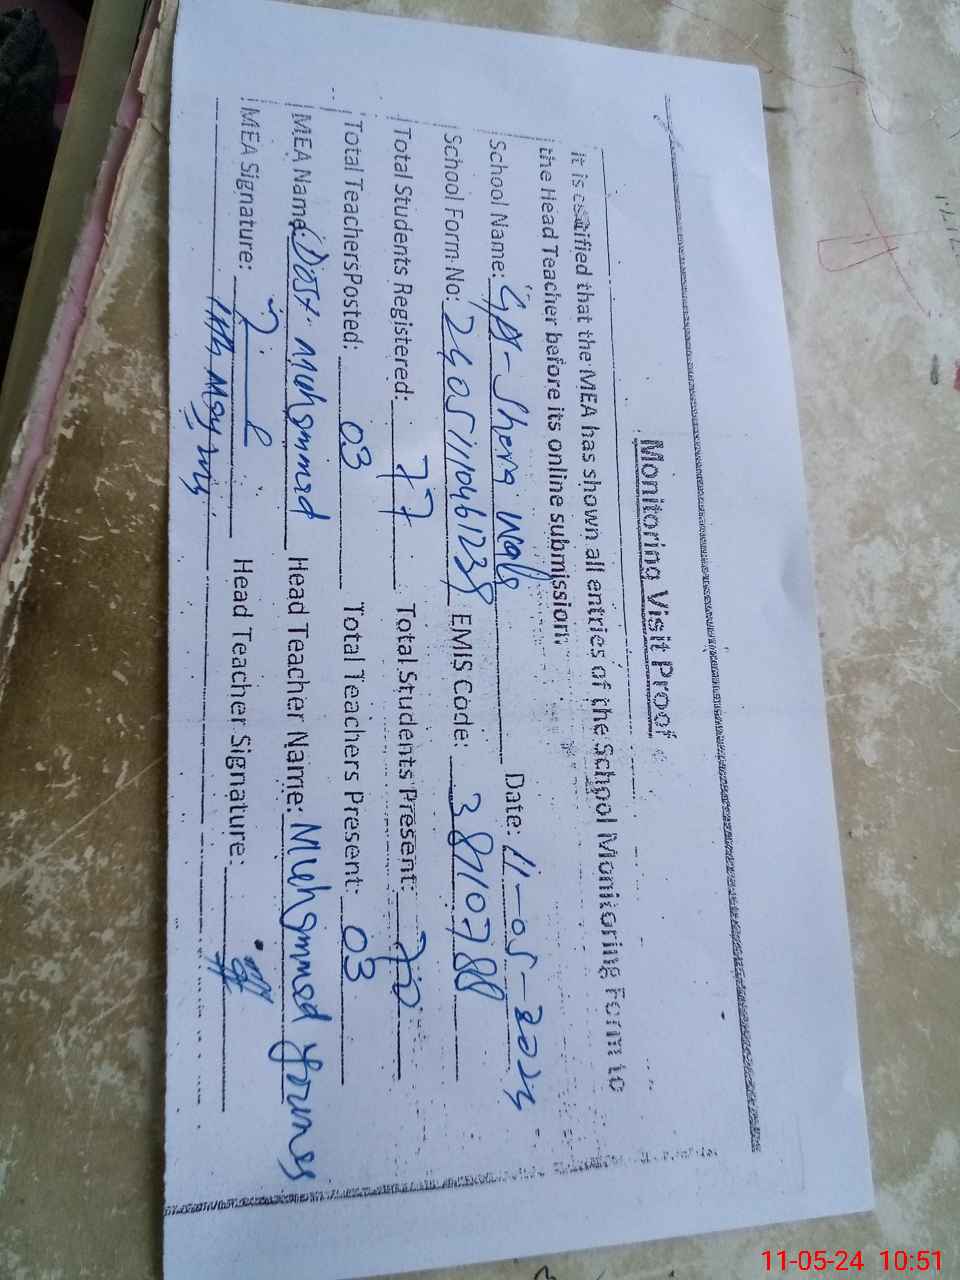 Monitoring Visit Proof
it is certified that the MEA has shown all entries of the School Monitoring Form to
the Head Teacher before its online submission.
School Name: GPS-Shera Wala Date: 11-05-2024
School Form No: EMIS Code: 38710788
Total Students Registered: 77 Total Students Present: 70
Total TeachersPosted: 03 Total Teachers Present: 03
MEA Name: Dost Muhammad Head Teacher Name: Muhammad Younas
MEA Signature: Head Teacher Signature:
11-05-24 10:51